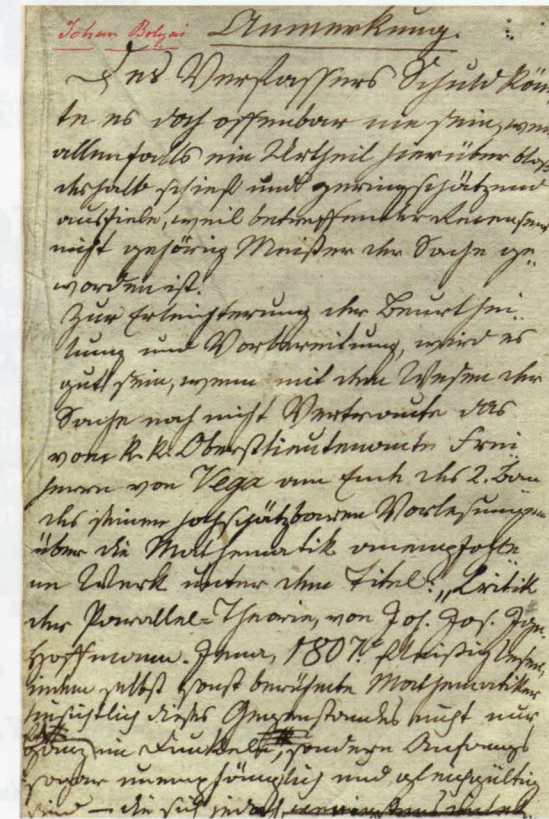 Johan Bolyai Anmerkung.
Des Verfassers Schuld kön
te es doch offenbar nie sein, wen
allenfalls ein Urtheil hierüber blos
deshalb schief und geringschätzend
ausfiele, weil betreffender Recensent
nicht gehörig Meister der Sache ge„
worden ist.
Zur Erleichterung der Beurthei„
lung und Vorbereitung, wird es
gut sein, wenn mit dem Wesen der
Sache noch nicht Vertraute das
vom k. k. Oberstlieutenante Frei
herrn von Vega am Ende des 2. Ban
des seiner hochschätzbaren Vorlesungen
über die Mathematik anempfohle
ne Werk unter dem Titel: „Kritik
der Parallel=Theorie, von Joh. Jos. Ign.
Hoffmann. Jena, 1807." fleissig lesen,
indem selbst sonst berühmte Mathematiker
hinsichtlich dieses Gegenstandes nicht nur
ganz im Dunkeln, sondern Anfangs
sogar unempfänglich und gleichgültig
sind — die sich jedoch